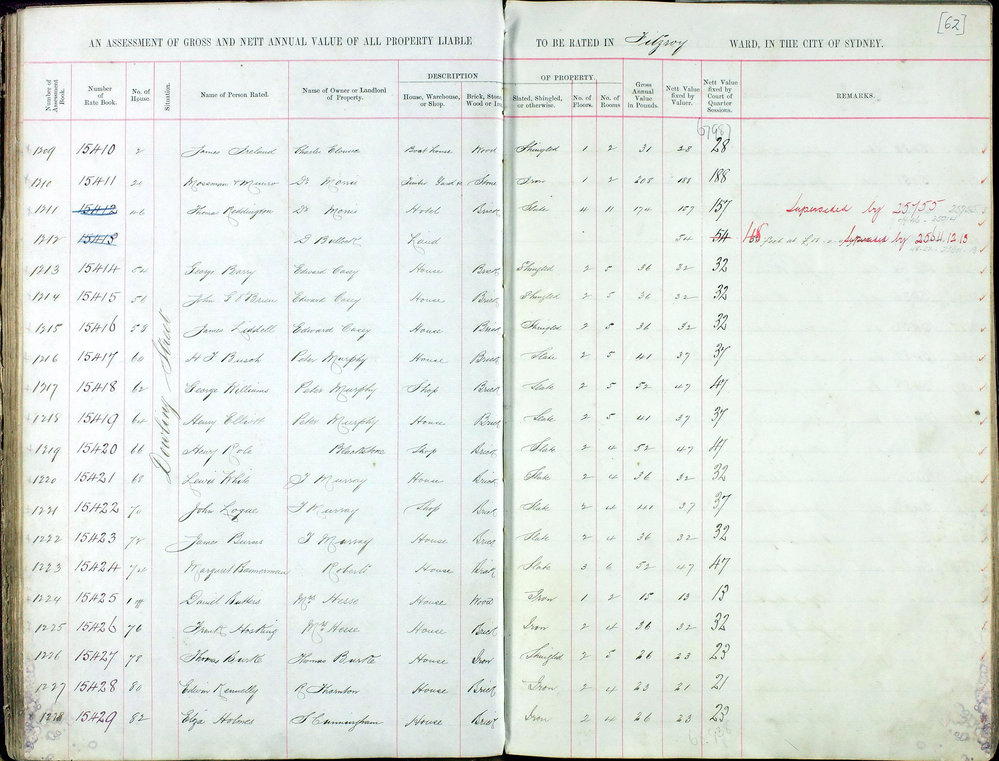 [62]
AN ASSESSMENT OF GROSS AND NETT ANNUAL VALUE OF ALL PROPERTY LIABLE TO BE RATED IN Fitzroy WARD, IN THE CITY OF SYDNEY.
DESCRIPTION OF PROPERTY.
Number of Assessment Book. Number of Rate Book. No. of House. Situation. Name of Person Rated. Name of Owner or Landlord of Property. House, Warehouse, or Shop. Brick, Stone Wood or Iron Slated, Shingled, or otherwise. No. of Floors. No. of Rooms Gross Annual Value in Pounds. Nett Value fixed by Valuer. Nett Value fixed by Court of Quarter Sessions. REMARKS.
Dowling Street
1209 15410 2 James Ireland Charles Boat house Wood Shingled 1 2 31 28 28
1210 15411 20 Mossman & Munro Dr Morris Timber Yard Stone Iron 1 2 208 188 188
1211 15412 46 Thomas Reddington Dr Morris Hotel Brick Slate 4 11 174 157 157 Superseded by 25755
1212 15413 D Bullock Land 54 54 Superseded by 2564.12.13
1213 15414 54 George Barry Edward Casey House Brick Shingled 2 5 36 32 32
1214 15415 56 John G O'Brien Edward Casey House Brick Shingled 2 5 36 32 32
1215 15416 58 James Liddell Edward Casey House Brick Shingled 2 5 36 32 32
1216 15417 60 H J Busch Peter Murphy House Brick Slate 2 5 41 37 37
1217 15418 62 George Williams Peter Murphy Shop Brick Slate 2 5 52 47 47
1218 15419 64 Henry Elliott Peter Murphy House Brick Slate 2 5 41 37 37
1219 15420 66 Henry Cole Blackstone Shop Brick Slate 2 4 52 47 47
1220 15421 68 Lewis White T Murray House Brick Slate 2 4 36 32 32
1221 15422 70 John Logue T Murray Shop Brick Slate 2 4 41 37 37
1222 15423 72 James Burns T Murray House Brick Slate 2 4 36 32 32
1223 15424 74 Margaret Bannerman Roberts House Brick Slate 3 6 52 47 47
1224 15425 Daniel Butters Mrs Hesse House Wood Iron 1 2 15 13 13
1225 15426 76 Frank Hosking Mrs Hesse House Brick Iron 2 4 36 32 32
1226 15427 78 Thomas Burke Thomas Burke House Iron Shingled 2 5 26 23 23
1227 15428 80 Edwin Kennelly R Thornton House Brick Iron 2 4 23 21 21
1228 15429 82 Eliza Holmes S Cunningham House Brick Iron 2 4 26 23 23